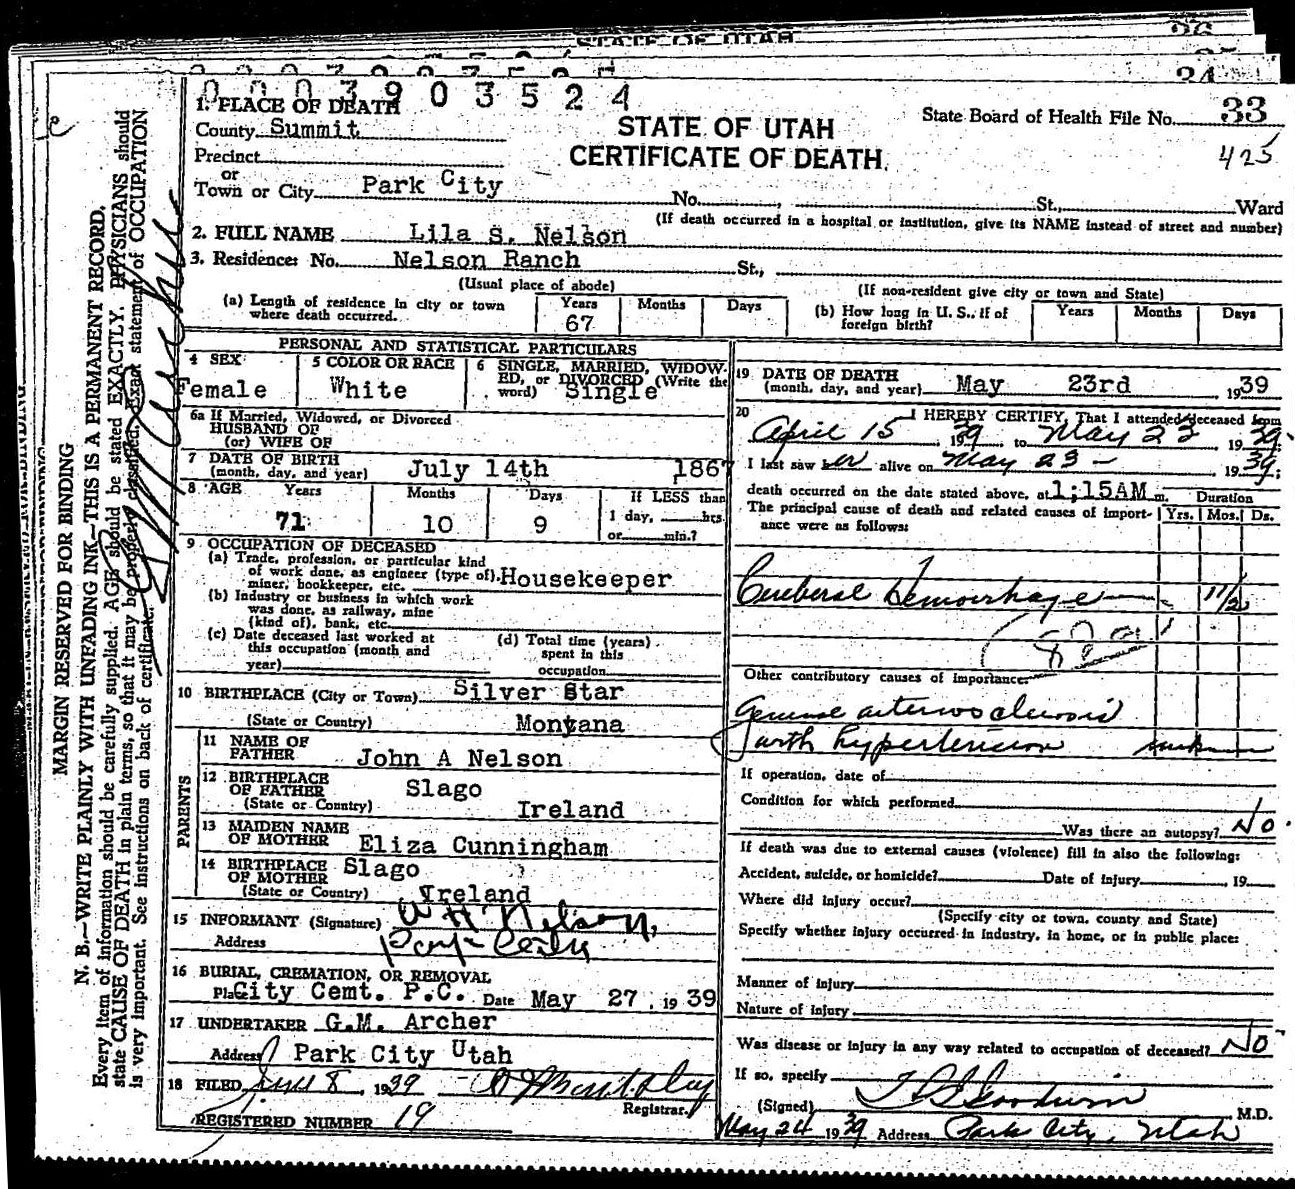 STATE OF UTAH
36
34
0003903524
1. PLACE OF DEATH
County Summit
Precinct
or
Town or City Park City
STATE OF UTAH
CERTIFICATE OF DEATH
State Board of Health File No. 33
425
No. , St., Ward
(If death occurred in a hospital or institution, give its NAME instead of street and number)
2. FULL NAME Lila S. Nelson
3. Residence: No. Nelson Ranch St.,
(Usual place of abode)
(If non-resident give city or town and State)
(a) Length of residence in city or town where death occurred. Years 67 Months Days
(b) How long in U. S., if of foreign birth? Years Months Days
PERSONAL AND STATISTICAL PARTICULARS
4 SEX Female
5 COLOR OR RACE White
6 SINGLE, MARRIED, WIDOWED, or DIVORCED (Write the word) Single
6a If Married, Widowed, or Divorced
HUSBAND OF
(or) WIFE OF
7 DATE OF BIRTH
(month, day, and year) July 14th 1867
8 AGE Years 71 Months 10 Days 9 If LESS than
1 day, hrs.
or min.?
9 OCCUPATION OF DECEASED
(a) Trade, profession, or particular kind
of work done, as engineer (type of), Housekeeper
miner, bookkeeper, etc.
(b) Industry or business in which work
was done, as railway, mine
(kind of), bank, etc.
(c) Date deceased last worked at
this occupation (month and
year)
(d) Total time (years)
spent in this
occupation
10 BIRTHPLACE (City or Town) Silver Star
(State or Country) Montana
PARENTS
11 NAME OF
FATHER John A Nelson
12 BIRTHPLACE
OF FATHER Slago
(State or Country) Ireland
13 MAIDEN NAME
OF MOTHER Eliza Cunningham
14 BIRTHPLACE
OF MOTHER Slago
(State or Country) Ireland
15 INFORMANT (Signature) W H Nelson,
Address Park City
16 BURIAL, CREMATION, OR REMOVAL
Place City Cemt. P.C. Date May 27, 1939
17 UNDERTAKER G.M. Archer
Address Park City Utah
18 FILED June 8, 1939
Registrar.
REGISTERED NUMBER 19
19 DATE OF DEATH
(month, day, and year) May 23rd 1939
20 I HEREBY CERTIFY, That I attended deceased from
April 15, 1939, to May 23, 1939;
I last saw her alive on May 23 - , 1939;
death occurred on the date stated above, at 1;15AM m. Duration
The principal cause of death and related causes of importance were as follows: Yrs. Mos. Ds.
Cerebral Hemorrhage 1 1/2
Other contributory causes of importance:
General arterio sclerosis
with hypertension unknown
If operation, date of
Condition for which performed
Was there an autopsy? No.
If death was due to external causes (violence) fill in also the following:
Accident, suicide, or homicide? Date of injury , 19
Where did injury occur?
(Specify city or town, county and State)
Specify whether injury occurred in industry, in home, or in public place:
Manner of injury
Nature of injury
Was disease or injury in any way related to occupation of deceased? No
If so, specify
(Signed) M.D.
May 24 1939 Address Park City, Utah
MARGIN RESERVED FOR BINDING
N. B.—WRITE PLAINLY WITH UNFADING INK—THIS IS A PERMANENT RECORD.
Every item of information should be carefully supplied. AGE should be stated EXACTLY. PHYSICIANS should
state CAUSE OF DEATH in plain terms, so that it may be properly classified. Exact statement of OCCUPATION
is very important. See instructions on back of certificate.